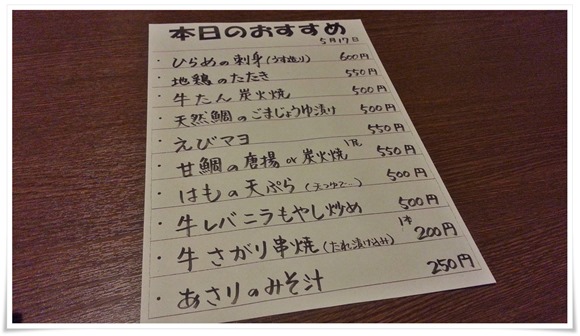 本日のおすすめ
5月17日
・ひらめの刺身(うす造り) 600円
・地鶏のたたき 550円
・牛たん炭火焼 500円
・天然鯛のごまじょうゆ漬け 500円
・えびマヨ 550円
・甘鯛の唐揚or炭火焼 550円
・はもの天ぷら(天つゆで…) 500円
・牛レバニラもやし炒め 500円
・牛さがり串焼(たれ漬け込み) 1本 200円
・あさりのみそ汁 250円